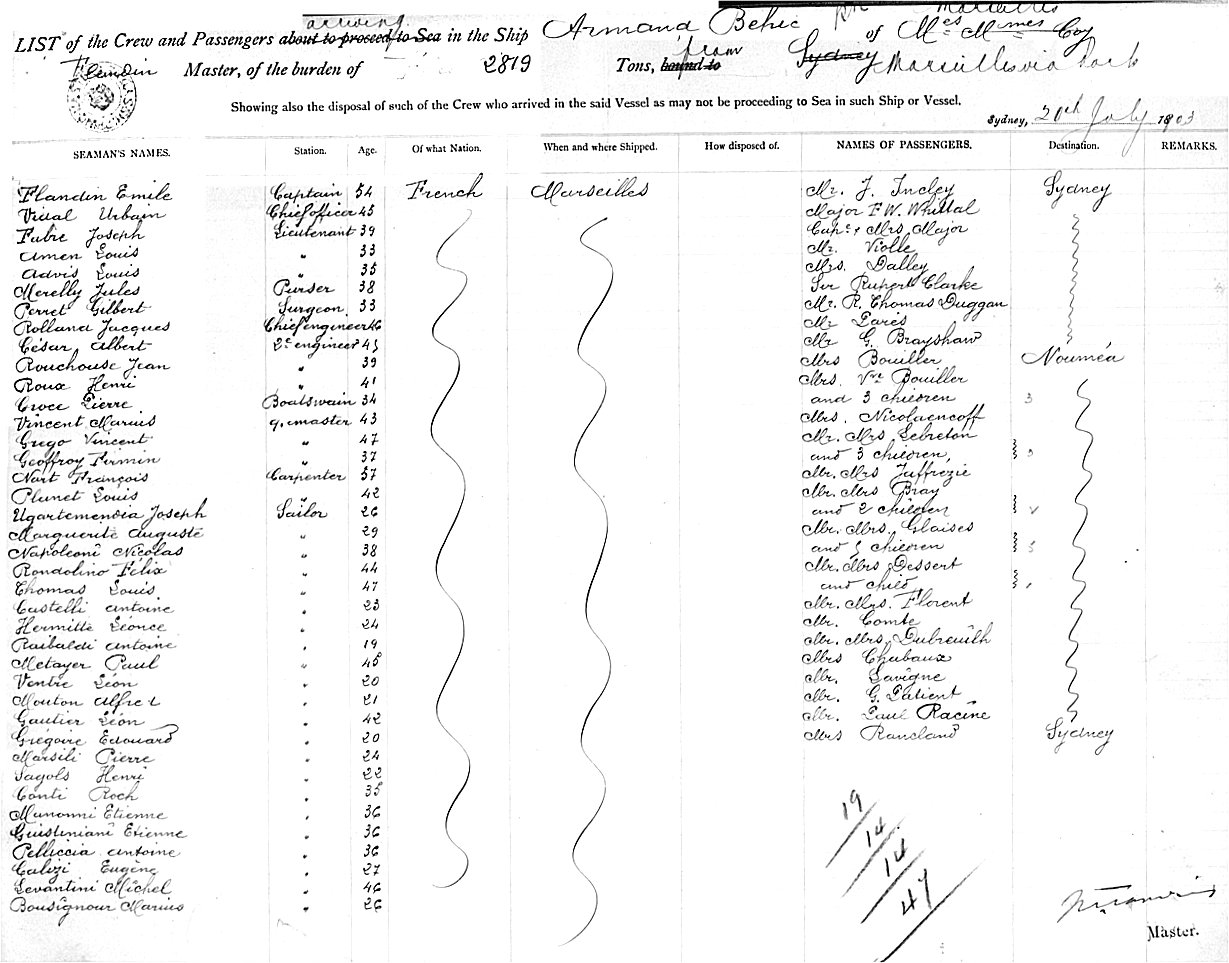 arriving Marseilles
LIST of the Crew and Passengers about to proceed to Sea in the Ship Armand Behic of Mes Mmes Coy
Flandin Master, of the burden of 2819 Tons, bound to from Sydney Marseilles via Ports
Showing also the disposal of such of the Crew who arrived in the said Vessel as may not be proceeding to Sea in such Ship or Vessel.
Sydney, 20th July 1903
SEAMAN'S NAMES. Station. Age. Of what Nation. When and where Shipped. How disposed of. NAMES OF PASSENGERS. Destination. REMARKS.
Flandin Emile Captain 54 French Marseilles Mr. J. Incley Sydney
Vidal Urbain Chief officer 45 Major F. W. Whittal
Fabre Joseph Lieutenant 39 Capt & Mrs Major
Amen Louis " 33 Mr. Violle
Advis Louis " 35 Mrs. Dalley
Merelly Jules Purser 38 Sir Rupert Clarke
Perret Gilbert Surgeon 33 Mr. R. Thomas Duggan
Rolland Jacques Chief engineer 46 Mr Parés
César Albert 2e engineer 45 Mr G. Brayshaw
Rouchouse Jean " 39 Mrs Bouiller Nouméa
Roux Henri " 41 Mrs. Vve Bouiller
Croce Pierre Boatswain 34 and 3 children 3
Vincent Marius q. master 43 Mrs. Nicolaencoff
Grego Vincent " 47 Mr. Mrs Lebreton
Geoffroy Firmin " 37 and 3 children, 3
Nart François Carpenter 57 Mr. Mrs Juffrezie
Plunet Louis " 42 Mr. Mrs Bray
Ugartemendia Joseph Sailor 26 and 2 children
Marguerite Auguste " 29 Mr. Mrs. Glaises
Napoleoni Nicolas " 38 and 5 children 5
Rondolino Félix " 44 Mr. Mrs Dessert
Thomas Louis " 47 and child
Castelli Antoine " 23 Mr. Mrs. Florent
Hermitte Léonce " 24 Mr. Comte
Raibaldi Antoine " 19 Mr. Mrs. Dubreuilh
Metayer Paul " 45 Mrs Chabaux
Ventre Léon " 20 Mr. Lavigne
Mouton Alfred " 21 Mr. G. Patient
Gautier Léon " 42 Mr. Paul Racine
Grégoire Edouard " 20 Mrs Rancland Sydney
Marsili Pierre " 24
Sagols Henri " 22
Conti Roch " 35
Manonni Etienne " 36
Guistiniani Etienne " 36
Pelliccia Antoine " 36
Calizi Eugène " 27
Levantini Michel " 46
Bousignour Marius " 26
19
14
14
47
Master.